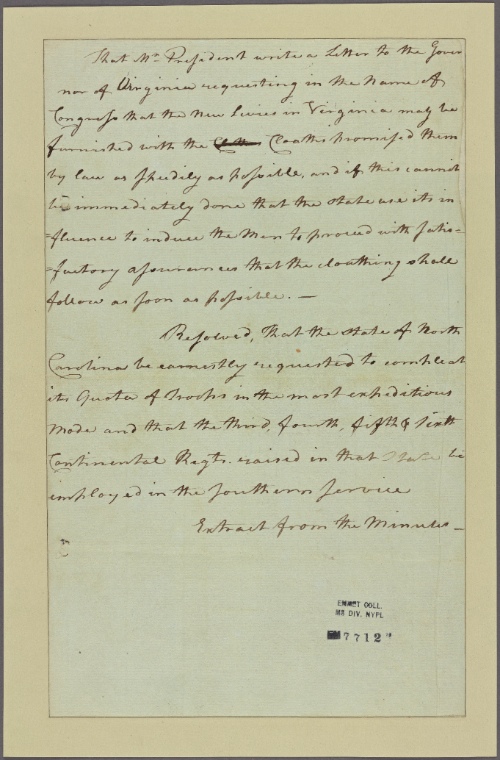 That Mr. President write a Letter to the Gover
nor of Virginia requesting in the Name of
Congress that the New Levies in Virginia may be
furnished with the Cloaths promised them
by law as speedily as possible, and if this cannot
be immediately done that the state use its in
=fluence to induce the Men to proceed with satis=
=factory assurances that the cloathing shall
follow as soon as possible. —
Resolved, That the State of North
Carolina be earnestly requested to compleat
its Quota of Troops in the most expeditious
Mode and that the third, fourth, fifth & sixth
Continental Regts. raised in that State be
employed in the southern service
Extract from the Minutes —
EMMET COLL.
MS DIV. NYPL
7712